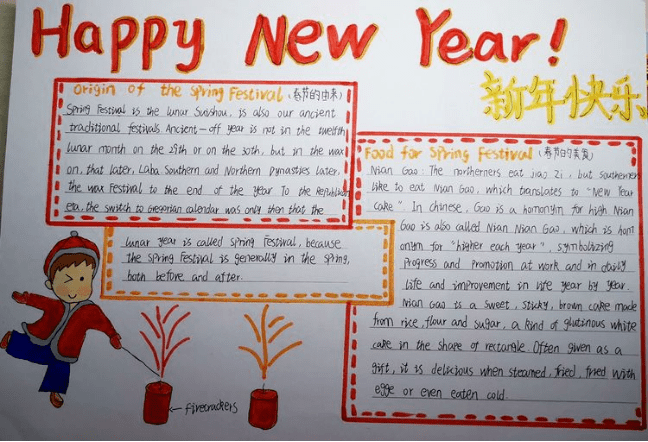 Happy New Year!
新年快乐
Origin of the Spring Festival (春节的由来)
Spring Festival is the lunar Suishou, is also our ancient
traditional festivals. Ancient-off year is not in the twelfth
lunar month on the 29th or on the 30th, but in the wax
on, that later, Laba. Southern and Northern Dynasties later,
the wax festival to the end of the year. To the Republican
era, the switch to Gregorian calendar was only then that the
lunar year is called spring Festival, because
the spring Festival is generally in the spring,
both before and after.
Food for Spring Festival (春节的美食)
Nian Gao. The northerners eat jiao zi, but southerners
like to eat Nian Gao, which translates to "New Year
Cake". In chinese, Gao is a homonym for high Nian
Gao is also called Nian Nian Gao, which is hom
onym for "higher each year", symbolizing
progress and promotion at work and in daily
life and improvement in life year by year.
Nian Gao is a sweet, sticky, brown cake made
from rice flour and sugar, a kind of glutinous white
cake in the shape of rectangle. Often given as a
gift, it is delicious when steamed, fried, fried with
egge or even eaten cold.
firecrackers